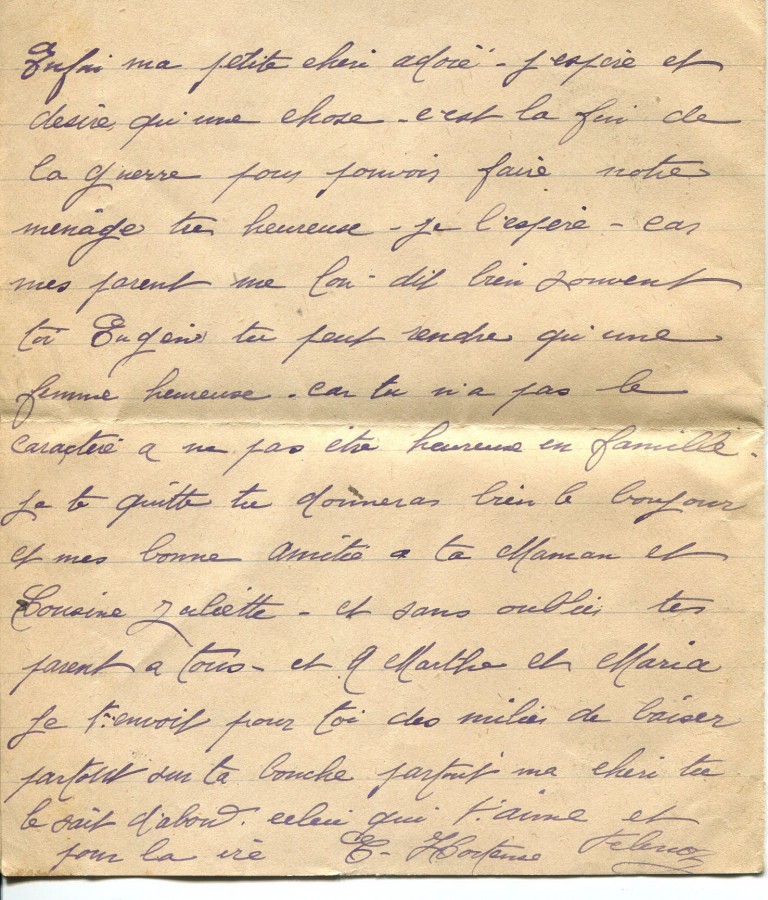 Enfin ma petite cheri adoré - j'espère et
desire qu'une chose - c'est la fin de
la guerre pour pouvois faire notre
ménage tres heureuse - je l'espère - car
mes parent me l'on dit bien souvent
toi Eugene tu peut rendre qu'une
femme heureuse - car tu n'a pas le
caractère a ne pas être heureuse en famille -
je te quitte tu donneras bien le bonjour
et mes bonne amitie a ta Maman et
Cousine Juliette - et sans oublier tes
parent a tous - et a Marthe et Maria
Je t'envoit pour toi des milier de baiser
partout sur ta bouche partout ma cheri tu
le sait d'abord. celui qui t'aime et
pour la vie E - Hortense